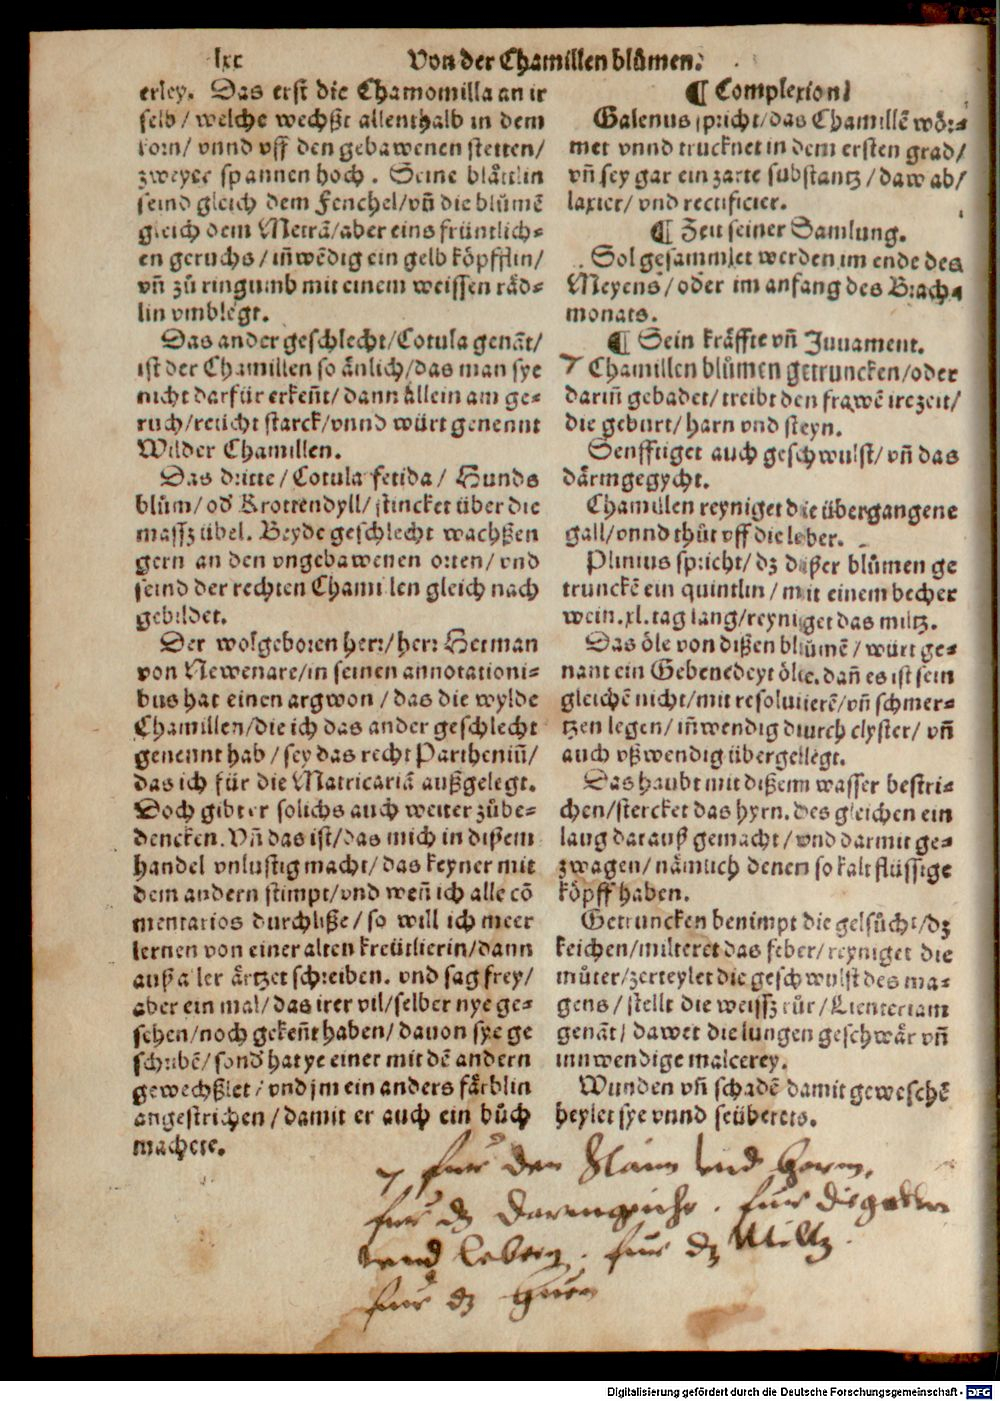 lxx
Von der Chamillen blůmen.
erley. Das erst die Chamomilla an ir
selb / welche wechßt allenthalb in dem
korn / vnnd vff den gebawenen stetten /
zweyer spannen hoch. Seine blåttlin
seind gleich dem Fenchel / vñ die blůmē
gleich dem Metrā / aber eins früntlich-
en geruchs / iñwēdig ein gelb köpfflin /
vñ zů ringumb mit einem weissen råd-
lin vmblegt.
Das ander geschlecht / Cotula genāt /
ist der Chamillen so ånlich / das man sye
nicht darfür erkeñt / dann allein am ge-
ruch / reücht starck / vnnd würt genennt
Wilder Chamillen.
Das dritte / Cotula fetida / Hunds
blům / od Krottendyll / stincket über die
massz übel. Beyde geschlecht wachßen
gern an den vngebawenen orten / vnd
seind der rechten Chamillen gleich nach
gebildet.
Der wolgeboren herr / herr Herman
von Newenare / in seinen annotationi-
bus hat einen argwon / das die wylde
Chamillen / die ich das ander geschlecht
genennt hab / sey das recht Partheniū /
das ich für die Matricariā außgelegt.
Doch gibt er solichs auch weiter zůbe-
dencken. Vñ das ist / das mich in dißem
handel vnlustig macht / das keyner mit
dem andern stimpt / vnd weñ ich alle cō
mentarios durchliße / so will ich meer
lernen von einer alten kreütlierin / dann
auß aller ärtzet schreiben. vnd sag frey /
aber ein mal / das irer vil / selber nye ge-
sehen / noch gekeñt haben / dauon sye ge
schribē / sond hat ye einer mit dē andern
gewechßlet / vnd jm ein anders färblin
angestrichen / damit er auch ein bůch
machete.
¶ Complexion
Galenus spricht / das Chamillē wör-
met vnnd trucknet in dem ersten grad /
vñ sey gar ein zarte substantz / dawab /
laxier / vnd rectificier.
¶ Zeit seiner Samlung.
Sol gesammlet werden im ende des
Meyens / oder im anfang des Brach-
monats.
¶ Sein kräffte vñ Juuament.
Chamillen blůmen getruncken / oder
dariñ gebadet / treibt den frawē ire zeit /
die geburt / harn vnd steyn.
Senfftiget auch geschwulst / vñ das
därmgegycht.
Chamillen reyniget die übergangene
gall / vnnd thůt vff die leber.
Plinius spricht / dz dißer blůmen ge
trunckē ein quintlin / mit einem becher
wein .xl. tag lang / reyniget das miltz.
Das öle von dißen blůmē / würt ge-
nant ein Gebenedeyt ölie. dañ es ist sein
gleichē nicht / mit resoluierē / vñ schmer-
tzen legen / iñwendig durch clyster / vñ
auch vßwendig übergelegt.
Das haubt mit dißem wasser bestri-
chen / stercket das hyrn. des gleichen ein
laug darauß gemacht / vnd darmit ge-
zwagen / nämlich denen so kalt flüssige
köpff haben.
Getruncken benimpt die gelsůcht / dz
keichen / milteret das feber / reyniget die
můter / zerteylet die geschwulst des ma-
gens / stellt die weissz růr / Lienteriam
genāt / dawet die lungen geschwär vñ
innwendige malcerey.
Wunden vñ schadē damit geweschē
heylet sye vnnd seüberets.
fur den Stain vnd Harn,
fur dz Darmgicht. fur die gallen
vnd lebern. fur dz Miltz.
fur dz Hirn
Digitalisierung gefördert durch die Deutsche Forschungsgemeinschaft - DFG